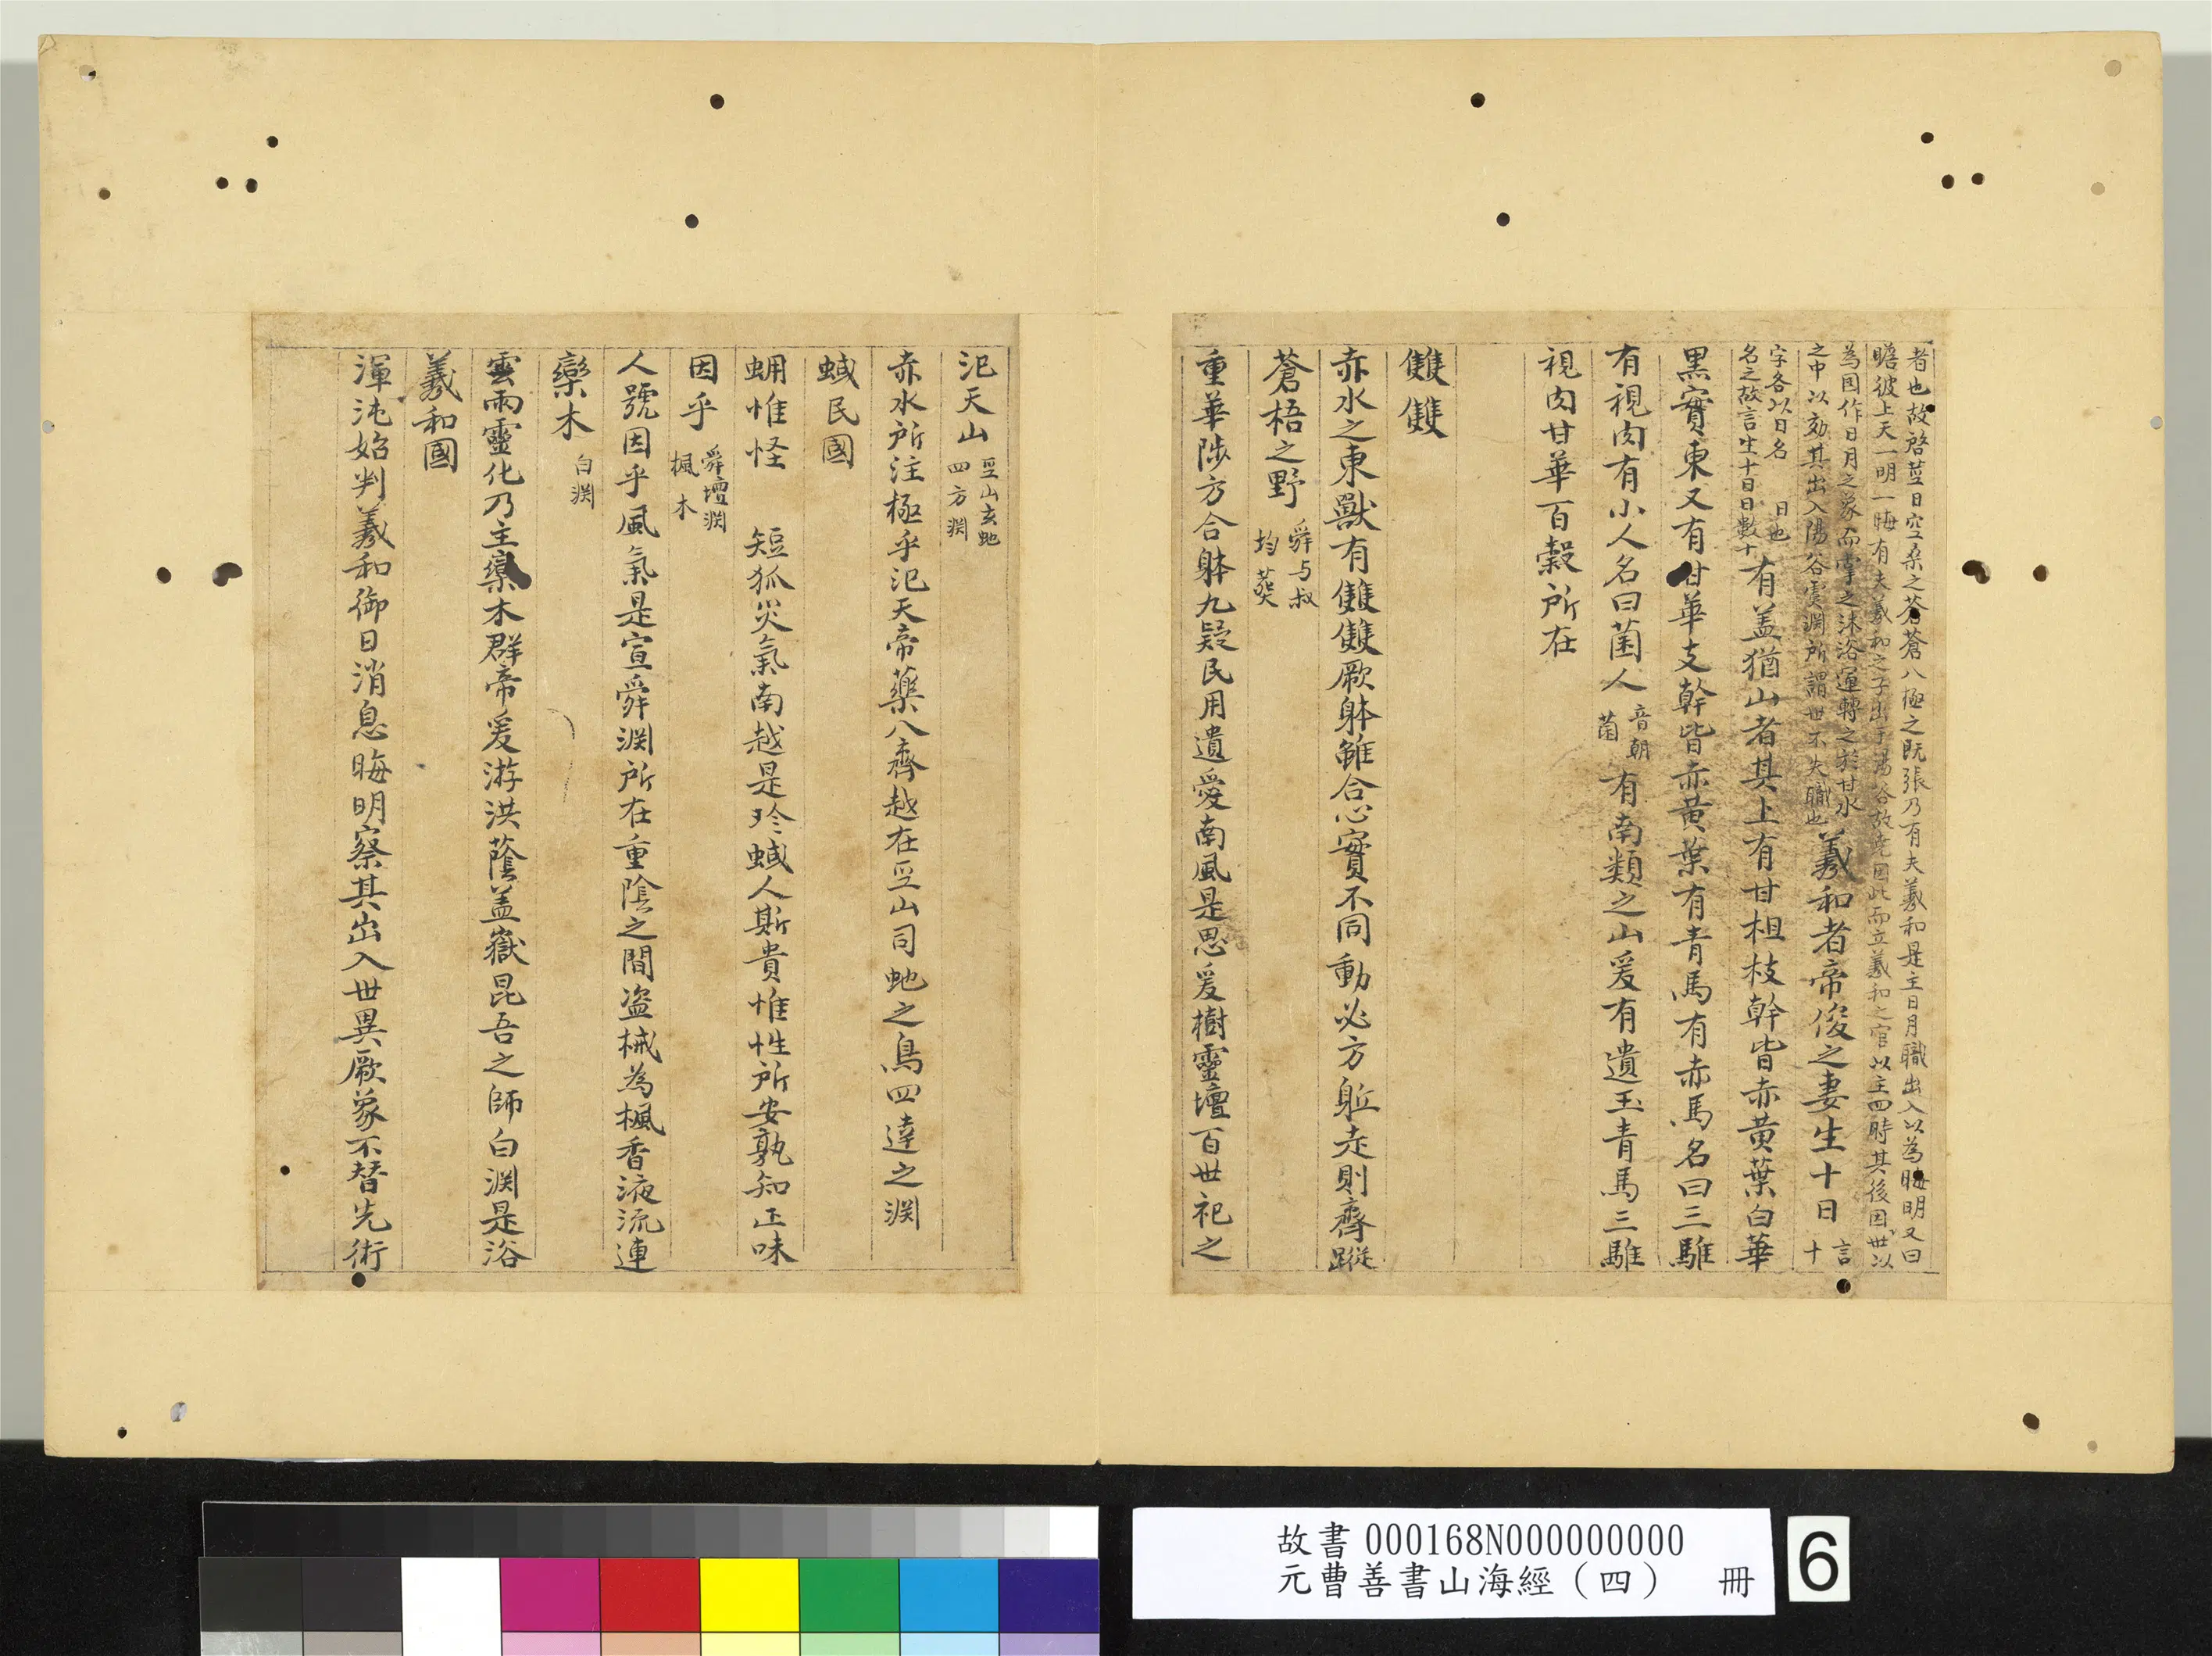 者也故啓莁曰空桑之蒼蒼八極之既張乃有夫羲和是主日月職出入以為晦明又曰
瞻彼上天一明一晦有夫羲和之子出于湯谷故堯因此而立羲和之官以主四時其後因世以
為因作日月之象而掌之沐浴運轉之於甘水
之中以効其出入陽谷虞淵所謂世不失職也
羲和者帝俊之妻生十日
言
十
字各以日名 日也
名之故言生十日日數十
有盖猶山者其上有甘柤枝幹皆赤黄葉白華
黑實東又有甘華支幹皆赤黄葉有青馬有赤馬名曰三騅
有視肉有小人名曰菌人
音朝
菌
有南類之山爰有遺玉青馬三騅
視肉甘華百穀所在
雙雙
赤水之東獸有雙雙厥躰雖合心實不同動必方軀走則齊蹤
蒼梧之野
舜与叔
均葬
重華陟方合躰九疑民用遺愛南風是思爰樹靈壇百世祀之
氾天山
巫山玄虵
四方淵
赤水所注極乎氾天帝藥八齊越在巫山司虵之鳥四達之淵
蜮民國
蜵惟怪 短狐災氣南越是珍蜮人斯貴惟性所安孰知正味
因乎
舜壇淵
楓木
人號因乎風氣是宣舜淵所在重陰之間盗械為楓香液流連
欒木
白淵
雲雨靈化乃主欒木群帝爰游洪蔭盖嶽昆吾之師白淵是浴
羲和國
渾沌始判羲和御日消息晦明察其出入世異厥象不替先術
故書 000168N000000000
元曹善書山海經（四） 冊
6